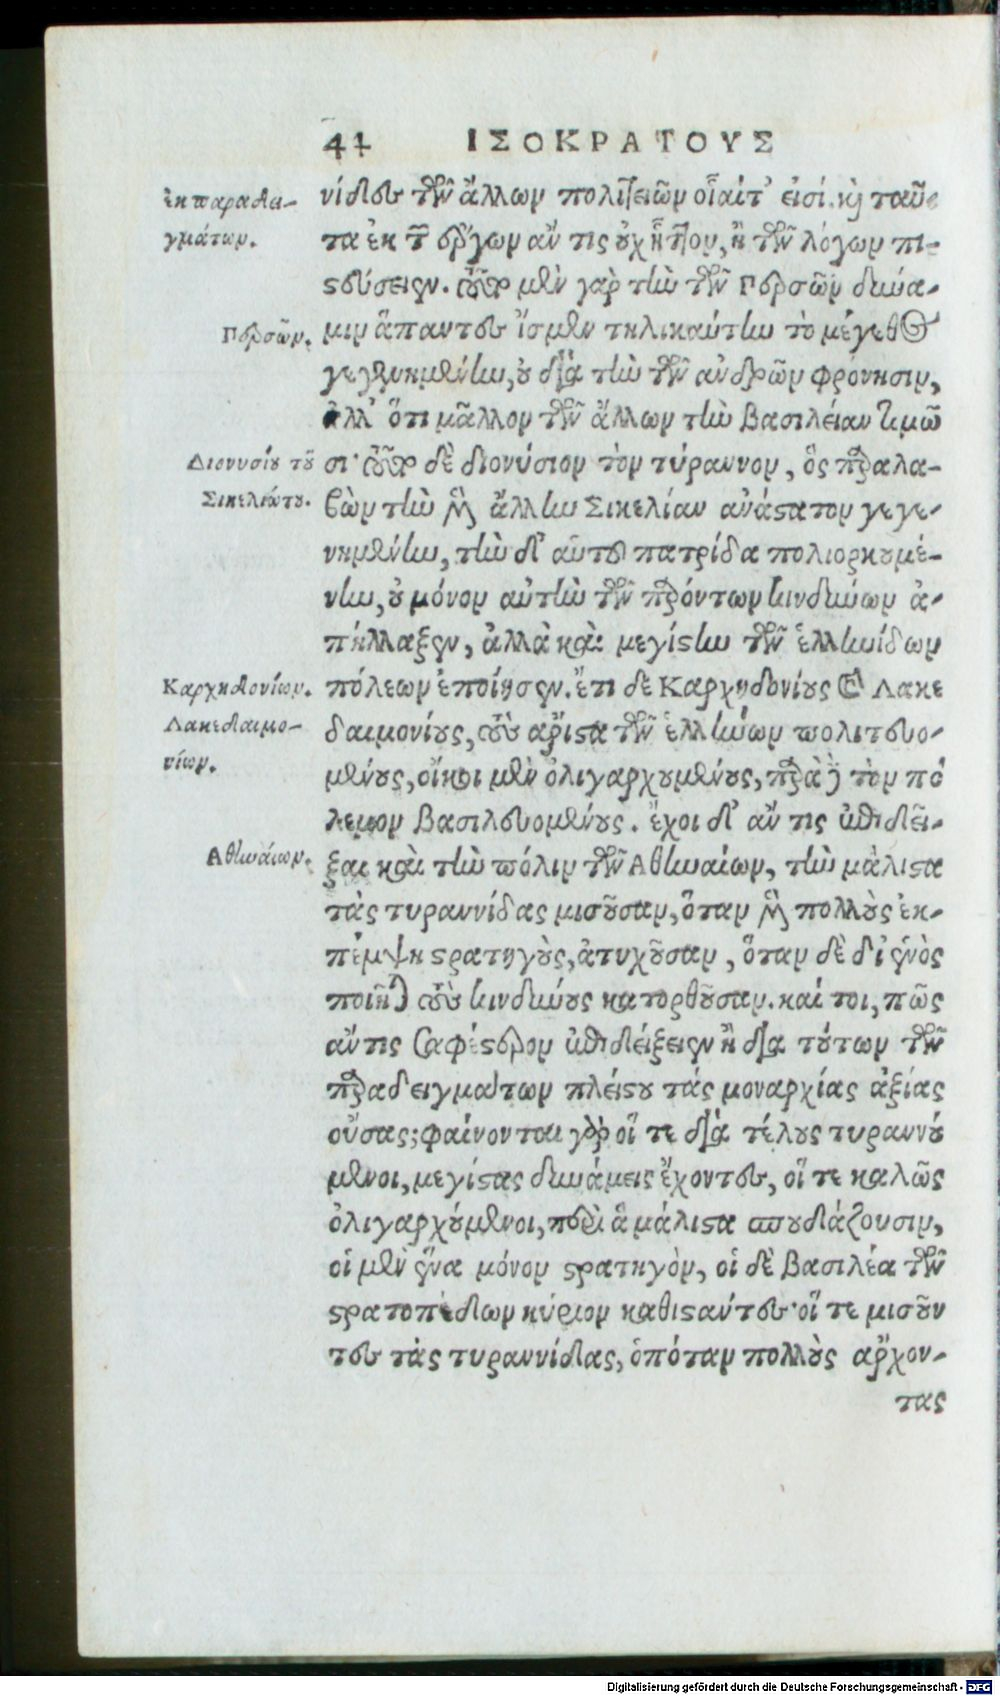 44 ΙΣΟΚΡΑΤΟΥΣ
ἐκ παραδει-
γμάτων.
νίδες τῶν ἄλλων πολιτειῶν οἷαί τ᾽ εἰσί. καὶ ταῦ-
τα ἐκ τῶν ἔργων ἄν τις οὐχ ἧττον, ἢ τῶν λόγων πι-
στεύσειεν. τοῦτο μὲν γὰρ τὴν τῶν Περσῶν δύνα-
Περσῶν.
μιν ἅπαντες ἴσμεν τηλικαύτην τὸ μέγεθος
γεγενημένην, οὐ διὰ τὴν τῶν ἀνδρῶν φρόνησιν,
ἀλλ᾽ ὅτι μᾶλλον τῶν ἄλλων τὴν βασιλείαν τιμῶ
Διονυσίου τοῦ
σι· τοῦτο δὲ διονύσιον τὸν τύραννον, ὃς παραλα-
Σικελιώτου.
βὼν τὴν μὲν ἄλλην Σικελίαν ἀνάστατον γεγε-
νημένην, τὴν δ᾽ αὑτοῦ πατρίδα πολιορκουμέ-
νην, οὐ μόνον αὐτὴν τῶν παρόντων κινδύνων ἀ-
πήλλαξεν, ἀλλὰ καὶ μεγίστην τῶν ἑλληνίδων
Καρχηδονίων.
πόλεων ἐποίησεν. ἔτι δὲ Καρχηδονίους καὶ Λακε
Λακεδαιμο-
δαιμονίους, τοὺς ἄριστα τῶν ἑλλήνων πολιτευο-
νίων.
μένους, οἴκοι μὲν ὀλιγαρχουμένους, παρὰ δὲ τὸν πό
λεμον βασιλευομένους. ἔχοι δ᾽ ἄν τις ἐπιδεῖ-
Αθηναίων.
ξαι καὶ τὴν πόλιν τῶν Αθηναίων, τὴν μάλιστα
τὰς τυραννίδας μισοῦσαν, ὅταν μὲν πολλοὺς ἐκ-
πέμψη στρατηγοὺς, ἀτυχοῦσαν, ὅταν δὲ δι᾽ ἑνὸς
ποιῆται τοὺς κινδύνους κατορθοῦσαν. καί τοι, πῶς
ἄν τις σαφέστερον ἐπιδείξειεν ἢ διὰ τούτων τῶν
παραδειγμάτων πλείστου τὰς μοναρχίας ἀξίας
οὔσας; φαίνονται γὰρ οἵ τε διὰ τέλους τυραννού
μενοι, μεγίστας δυνάμεις ἔχοντες, οἵ τε καλῶς
ὀλιγαρχούμενοι, περὶ ἃ μάλιστα σπουδάζουσιν,
οἱ μὲν ἕνα μόνον στρατηγὸν, οἱ δὲ βασιλέα τῶν
στρατοπέδων κύριον καθιστάντες· οἵ τε μισοῦν
τες τὰς τυραννίδας, ὁπόταν πολλοὺς ἄρχον-
τας
Digitalisierung gefördert durch die Deutsche Forschungsgemeinschaft - DFG